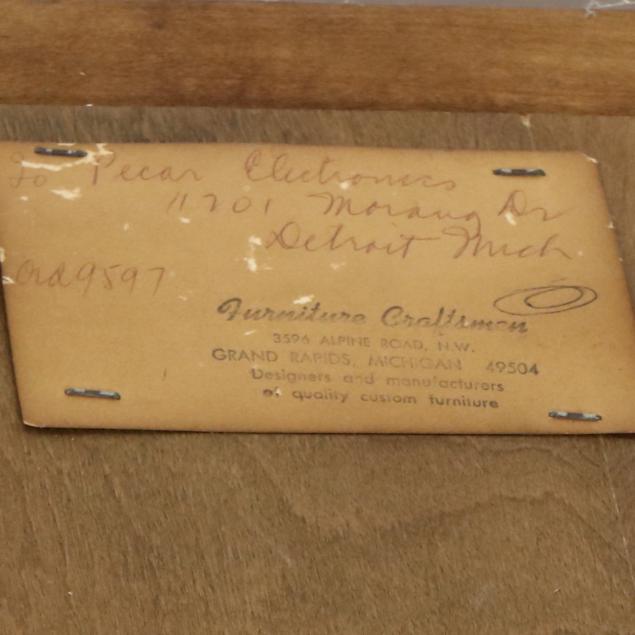 To Pecar Electronics
11201 Morang Dr
Detroit Mich
Ord 9597
Furniture Craftsmen
3594 ALPINE ROAD, N.W.
GRAND RAPIDS, MICHIGAN 49504
Designers and manufacturers
of quality custom furniture